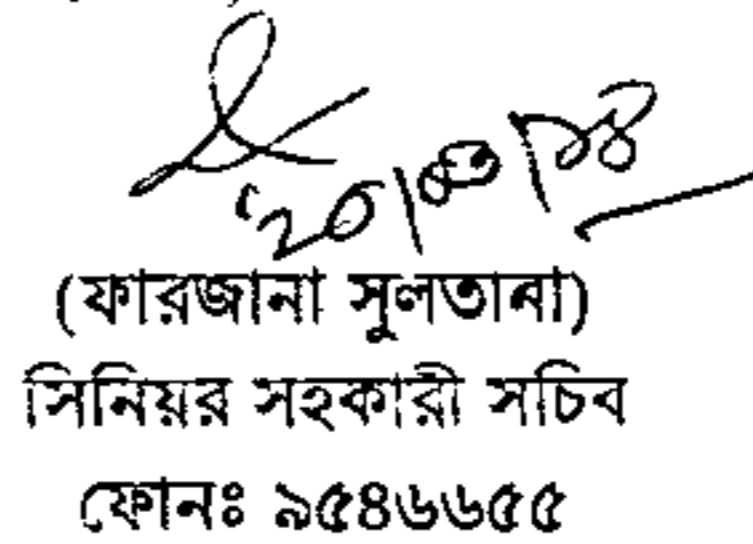 (ফারজানা সুলতানা)
সিনিয়র সহকারী সচিব
ফোনঃ ৯৫৪৬৬৫৫